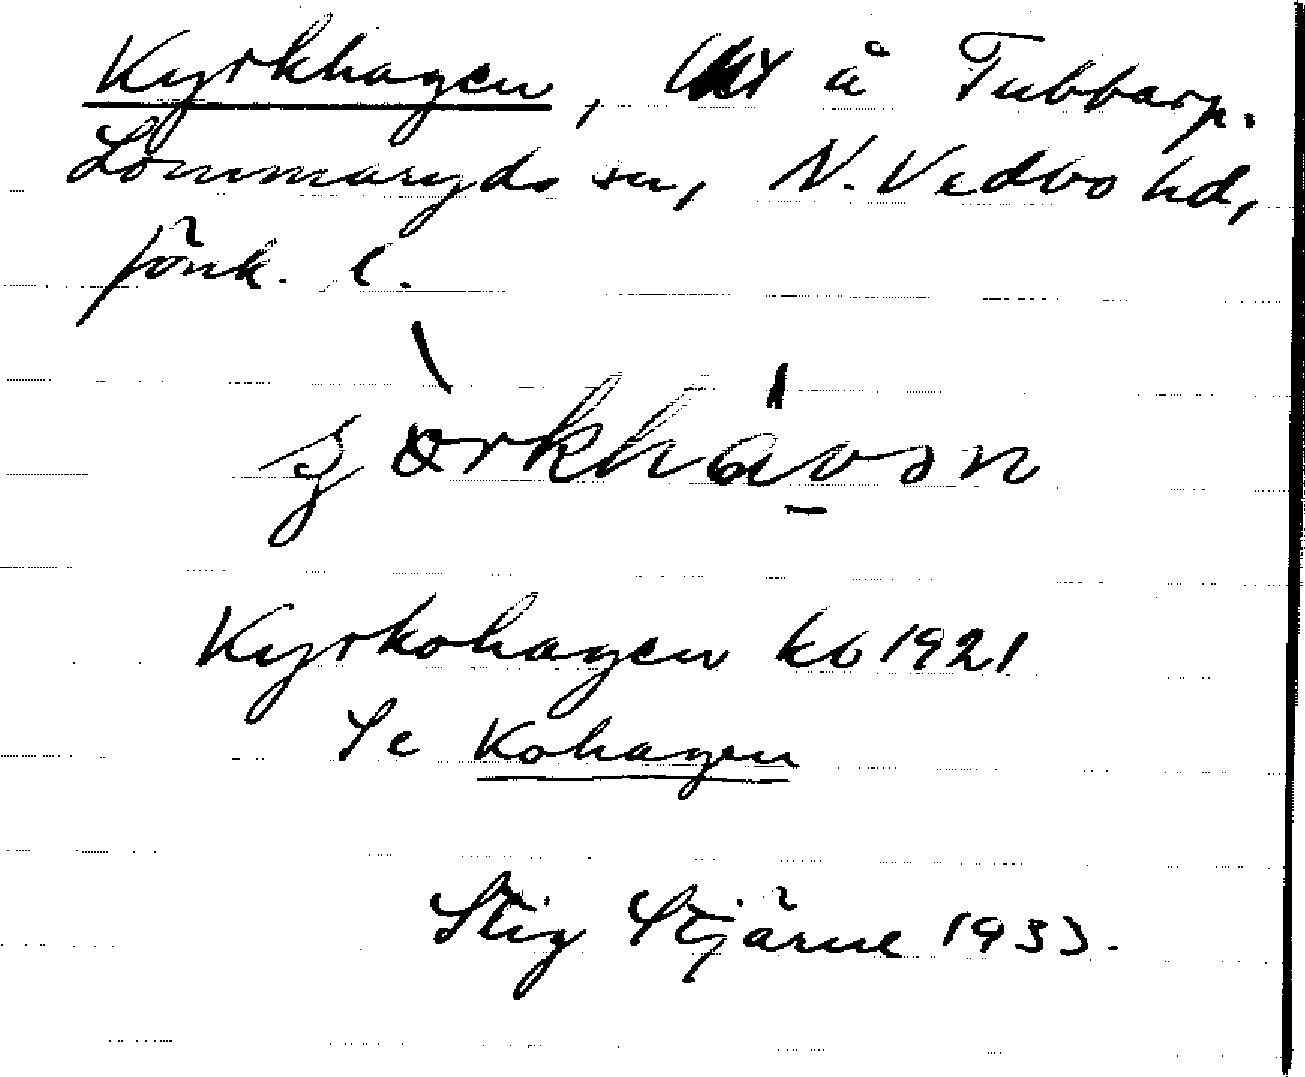 Kyrkhagen, å Tubbarp.
Lommaryds sn, N. Vedbo hd,
Jönk. l.
Kyrkohagen kb 1921
Se Kohagen
Stig Stjärne 1933.